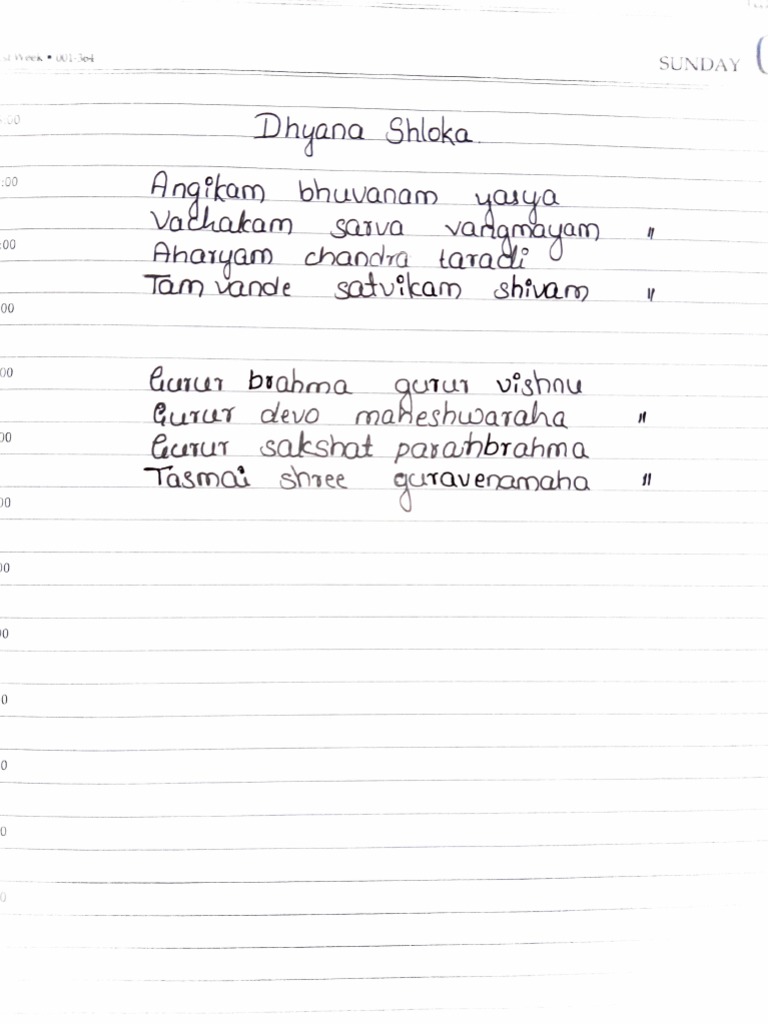 st Week • 001-364
SUNDAY
Dhyana Shloka
:00
Angikam bhuvanam yasya
:00
Vachakam sarva vangmayam "
:00
Aharyam chandra taradi
Tam vande satvikam shivam "
00
00
Gurur brahma gurur vishnu
Gurur devo maheshwaraha "
00
Gurur sakshat parambrahma
Tasmai shree guravenamaha "
00
00
00
0
0
0
0